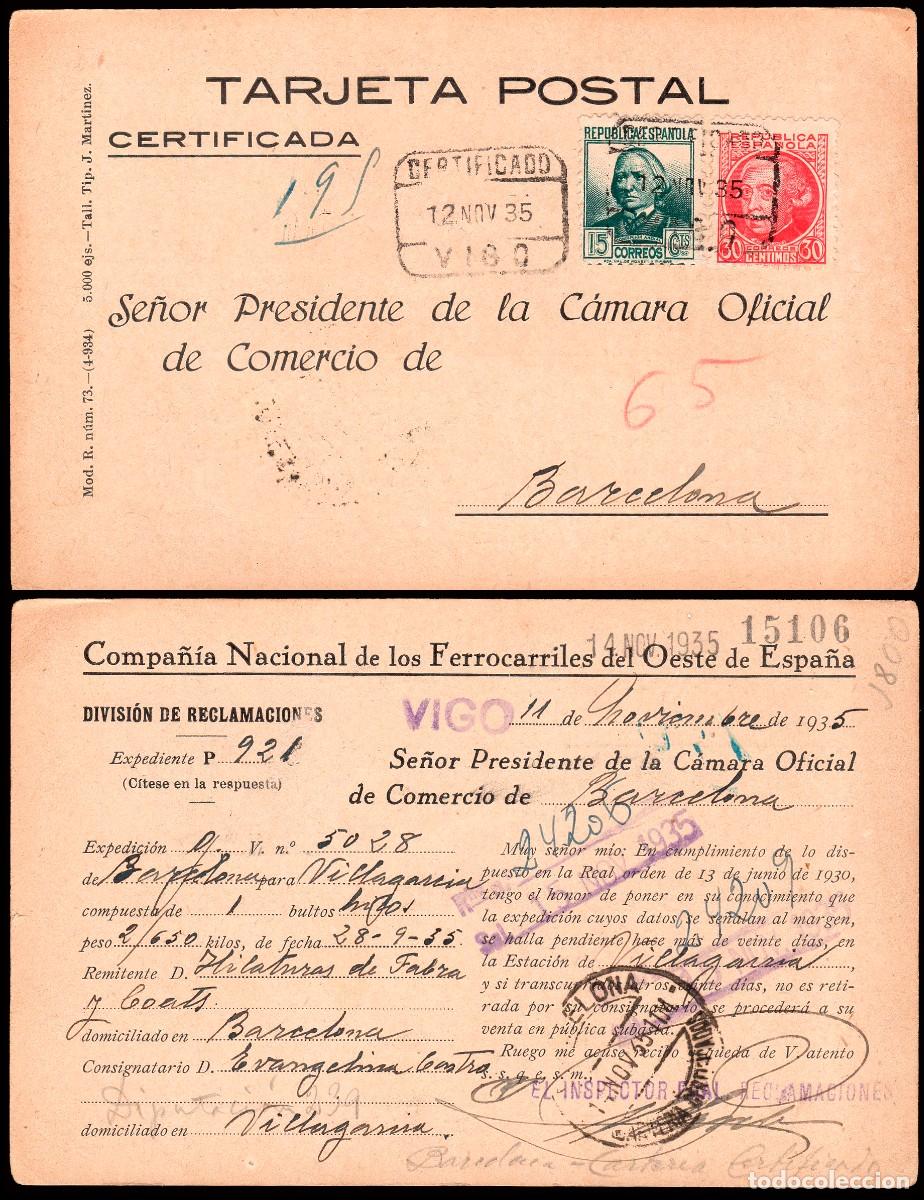 TARJETA POSTAL
CERTIFICADA
195
CERTIFICADO
12 NOV 35
VIGO
REPUBLICA ESPAÑOLA
15 CTS
CORREOS
REPUBLICA
ESPAÑOLA
12 NOV 35
CORREOS
30 CENTIMOS 30
Mod. R. núm. 73.—(4-934) 5.000 ejs.—Tall. Tip. J. Martínez.
Señor Presidente de la Cámara Oficial
de Comercio de
65
Barcelona
14 NOV. 1935 15106
1800
Compañía Nacional de los Ferrocarriles del Oeste de España
DIVISIÓN DE RECLAMACIONES
VIGO 11 de Noviembre de 1935
Expediente P 921
(Cítese en la respuesta)
Señor Presidente de la Cámara Oficial
de Comercio de Barcelona
24206
1935
24209
Expedición g. V. n.º 5028
de Barcelona para Villagarcia
compuesta de 1 bultos hilos
peso 2/650 kilos, de fecha 28-9-35
Remitente D. Hilaturas de Fabra
y Coats
domiciliado en Barcelona
Consignatario D. Evangelina Castro
Diputación 239
domiciliado en Villagarcia
Muy señor mío: En cumplimiento de lo dis-
puesto en la Real orden de 13 de junio de 1930,
tengo el honor de poner en su conocimiento que
la expedición cuyos datos se señalan al margen,
se halla pendiente hace más de veinte días, en
la Estación de Villagarcia,
y si transcurridos otros veinte días, no es reti-
rada por su consignatario, se procederá a su
venta en pública subasta.
Ruego me acuse recibo y queda de V. atento
s. s. q. e. s. m.,
EL INSPECTOR PRAL. RECLAMACIONES
Barcelona - Cartería Certificado
todocoleccion